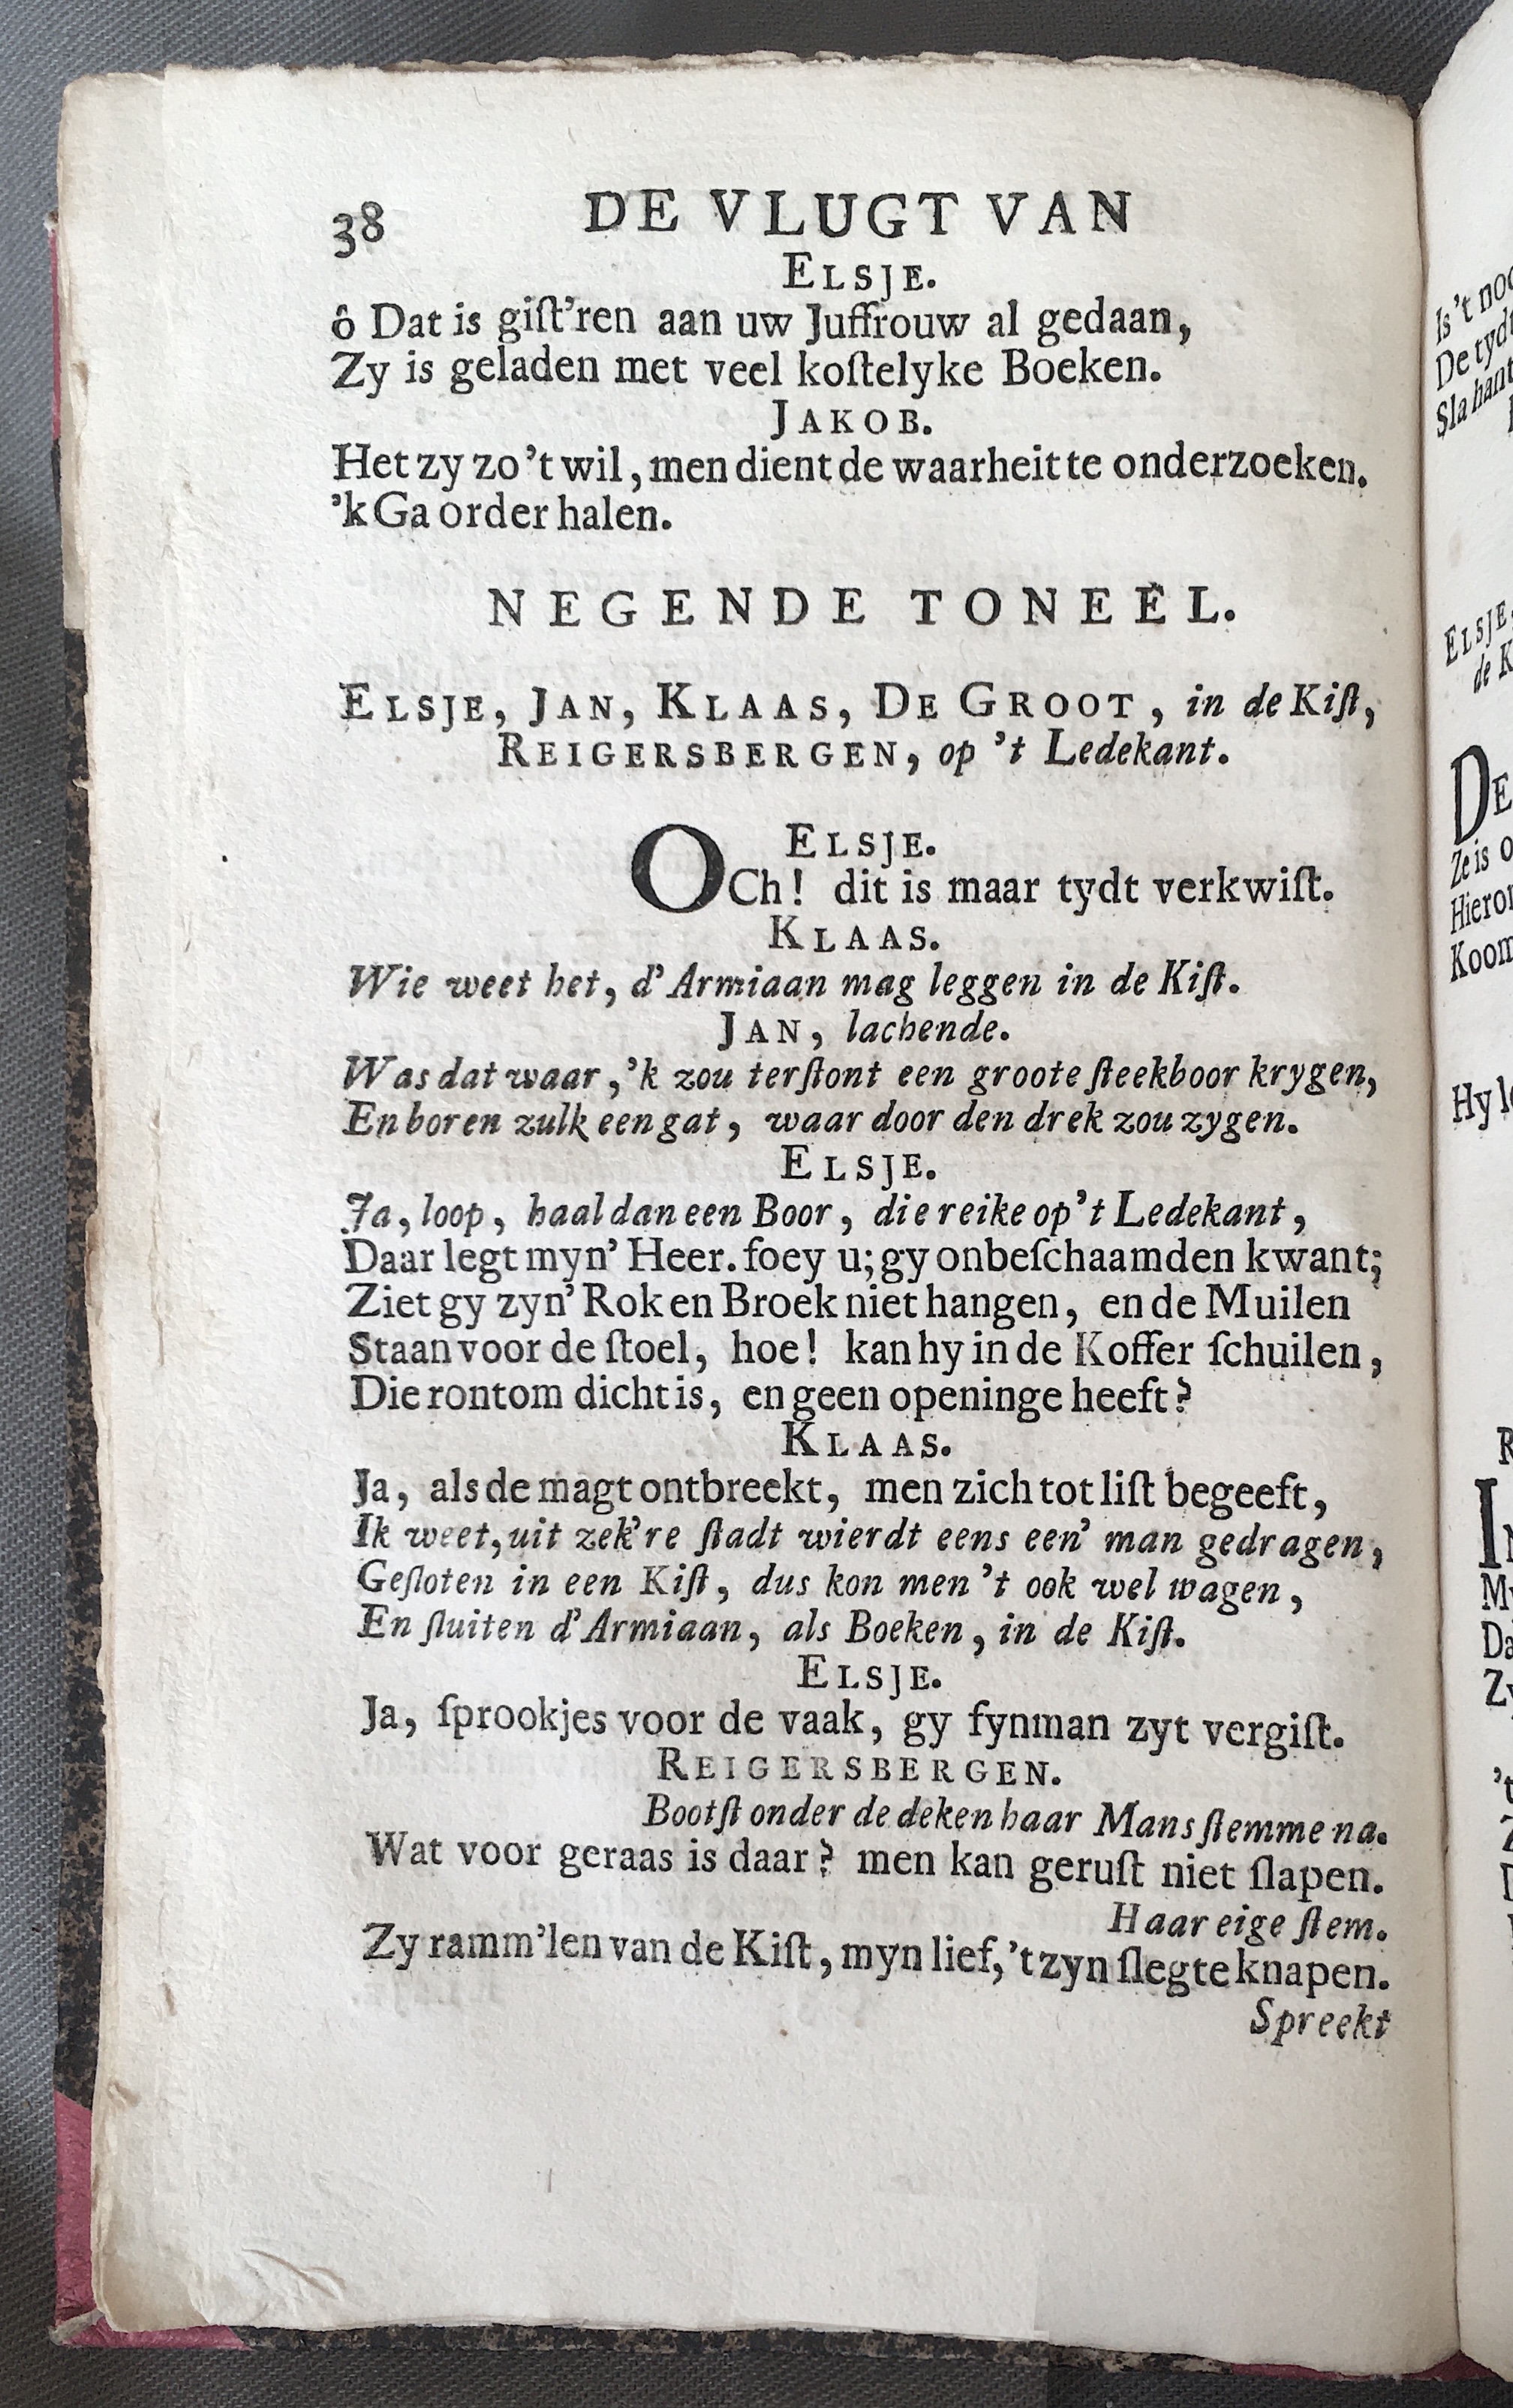 38 DE VLUGT VAN
ELSJE.
ô Dat is giſt’ren aan uw Juffrouw al gedaan,
Zy is geladen met veel koſtelyke Boeken.
JAKOB.
Het zy zo ’t wil, men dient de waarheit te onderzoeken.
’k Ga order halen.
NEGENDE TONEEL.
ELSJE, JAN, KLAAS, DE GROOT, in de Kiſt,
REIGERSBERGEN, op ’t Ledekant.
ELSJE.
OCh! dit is maar tydt verkwiſt.
KLAAS.
Wie weet het, d’Armiaan mag leggen in de Kiſt.
JAN, lachende.
Was dat waar, ’k zou terſtont een groote ſteekboor krygen,
En boren zulk een gat, waar door den drek zou zygen.
ELSJE.
Ja, loop, haal dan een Boor, die reike op ’t Ledekant,
Daar legt myn’ Heer. foey u; gy onbeſchaamden kwant;
Ziet gy zyn’ Rok en Broek niet hangen, en de Muilen
Staan voor de ſtoel, hoe! kan hy in de Koffer ſchuilen,
Die rontom dicht is, en geen openinge heeft?
KLAAS.
Ja, als de magt ontbreekt, men zich tot liſt begeeft,
Ik weet, uit zek’re ſtadt wierdt eens een’ man gedragen,
Geſloten in een Kiſt, dus kon men ’t ook wel wagen,
En ſluiten d’Armiaan, als Boeken, in de Kiſt.
ELSJE.
Ja, ſprookjes voor de vaak, gy fynman zyt vergiſt.
REIGERSBERGEN.
Bootſt onder de deken haar Mans ſtemme na.
Wat voor geraas is daar? men kan geruſt niet ſlapen.
Haar eige ſtem.
Zy ramm’len van de Kiſt, myn lief, ’t zyn ſlegte knapen.
Spreekt
Is ’t
De tydt
Sla
ELSJE,
de K
DE
Ze is
Koom
Hy